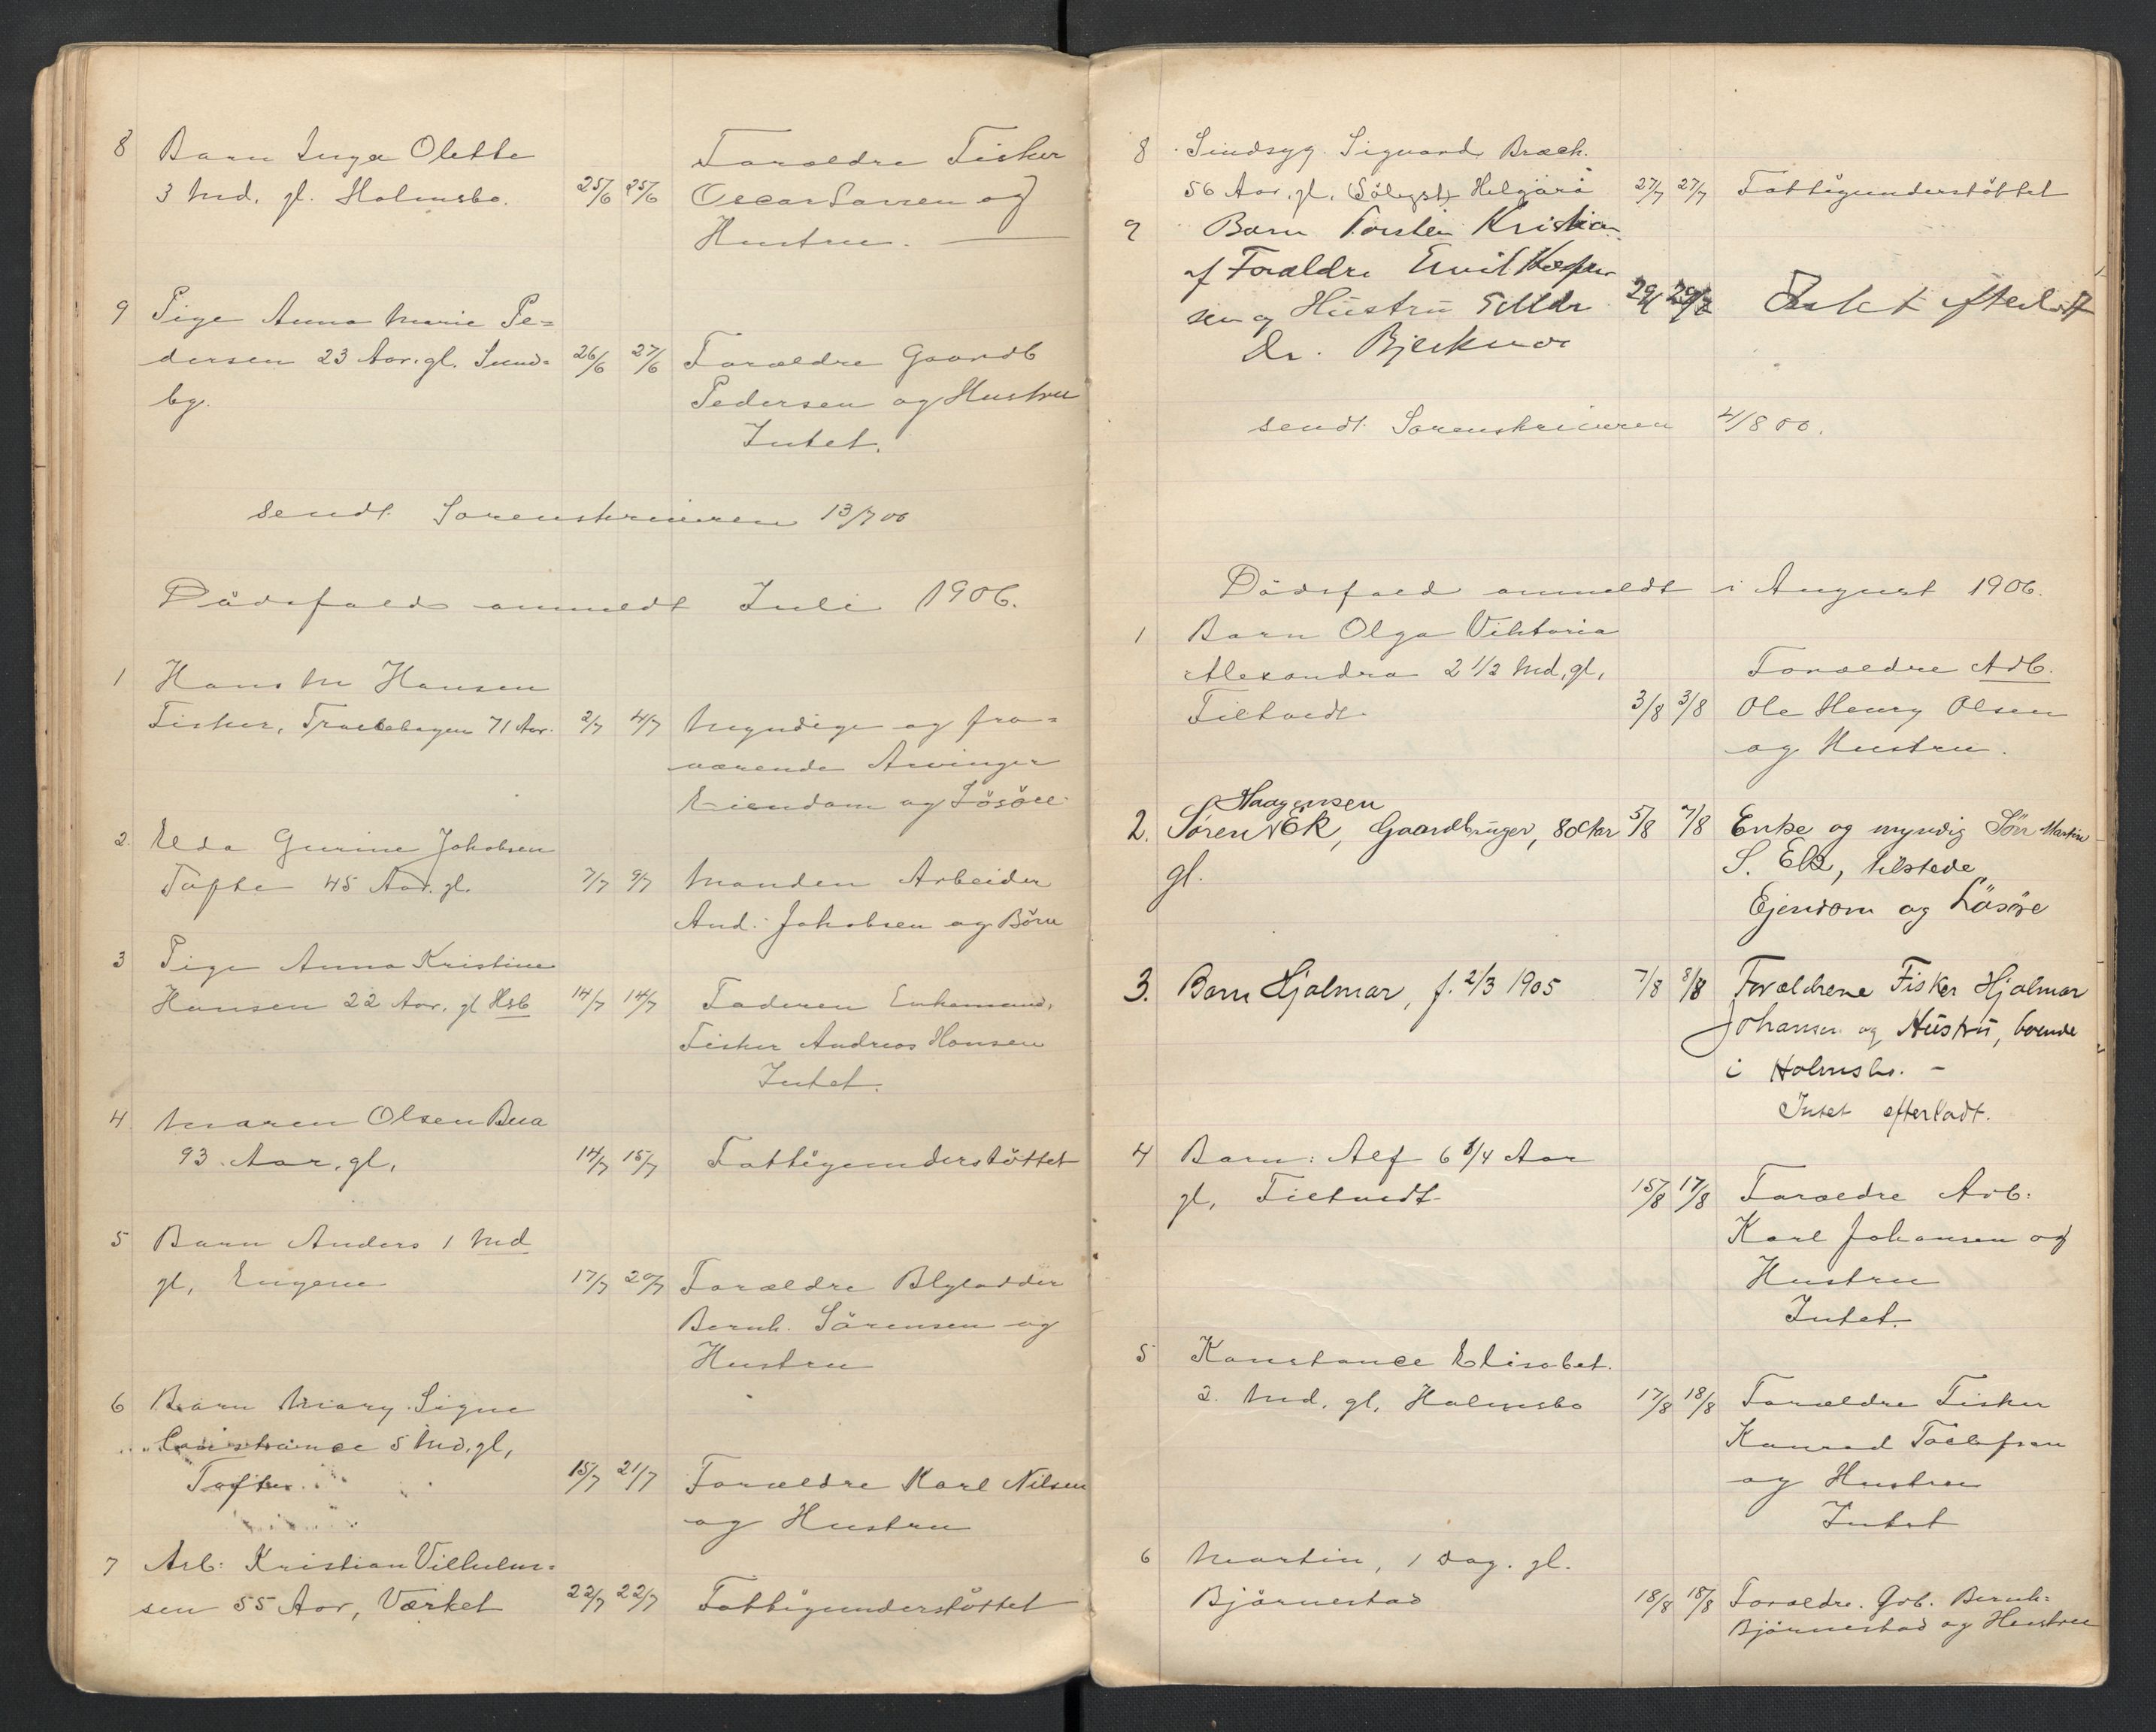 8 Barn Inga Olette
3 Md. gl. Holmsbo. 25/6 25/6 Forældre Fisker
Oscar Larsen og
Hustru.
9 Pige Anna Marie Pe=
dersen 23 Aar. gl. Sund= 26/6 27/6 Forældre Gaardb
bg. Pedersen og Hustru
Intet.
sendt Sorenskriveren 13/7 06
Dödsfald anmeldt Juli 1906.
1 Hans M Hansen
Fisker, 71 Aar. 2/7 4/7 Myndige og fra=
værende Arvinger
Eiendom og Lösöre
2. Elda Gurine Jakobsen
Tofte 45 Aar. gl. 7/7 9/7 Manden Arbeider
And. Jakobsen og Börn
3 Pige Anna Kristine
Hansen 22 Aar. gl Hsb 14/7 14/7 Faderen Enkemand,
Fisker Andreas Hansen
Intet.
4 Maren Olsen Bua
93. Aar. gl, 14/7 15/7 Fattigunderstöttet
5 Barn Anders 1 Md
gl, Engene 17/7 20/7 Forældre
Bernh. Sörensen og
Hustru
6 Barn Mary Signe
Constance 5 Md. gl,
Tofte. 15/7 21/7 Forældre Karl Nilsen
og Hustru
7 Arb: Kristian Vilhelm=
sen 55 Aar, Værket 22/7 22/7 Fattigunderstöttet
8 Sindsyg. Sigvard Bræck.
56 Aar. gl. Helgerö 27/7 27/7 Fattigunderstöttet
9 Barn Torstein Kristian
af Forældre Emil
sen og Hustru 29/7 Intet efterladt
sendt Sorenskriveren 4/8 06.
Dödsfald anmeldt i August 1906.
1 Barn Olga Viktoria
Alexandra 2 1/2 Md, gl, Forældre Arb.
Filtvedt 3/8 3/8 Ole Henry Olsen
og Hustru.
Haagensen
2. Søren Ek, Gaardbruger, 80 Aar 5/8 7/8 Enke og myndig Søn Martin
gl. S. Ek, tilstede
Ejendom og Løsøre
3. Barn Hjalmar, f. 2/3 1905 7/8 8/8 Forældrene Fisker Hjalmar
Johansen og Hustru, boende
i Holmsbo. -
Intet efterladt.
4 Barn: Alf 6 1/4 Aar
gl, Filtvedt 15/8 17/8 Forældre Arb:
Karl Johansen og
Hustru
Intet.
5 Konstance Elisabet.
2. Md. gl, Holmsbo 17/8 18/8 Forældre Fisker
Konrad Tollefsen
og Hustru
Intet
6 Martin, 1 Dag. gl.
Björnestad 18/8 18/8 Forældre. Grb. Bernh=
Björnestad og Hustru